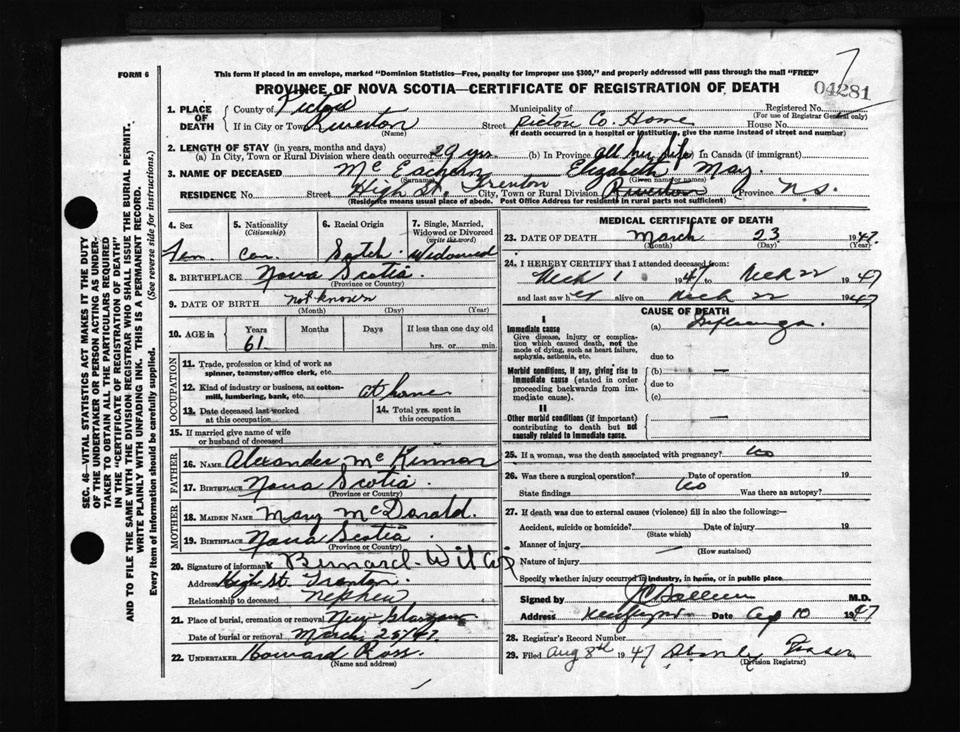 7
FORM 6
This form if placed in an envelope, marked "Dominion Statistics—Free, penalty for improper use $300," and properly addressed will pass through the mail "FREE"
PROVINCE OF NOVA SCOTIA—CERTIFICATE OF REGISTRATION OF DEATH
04281
1. PLACE OF DEATH
County of Pictou
Municipality of
Registered No.
(For use of Registrar General only)
If in City or Town Riverton
(Name)
Street Pictou Co. Home House No.
(If death occurred in a hospital or institution, give the name instead of street and number)
2. LENGTH OF STAY (in years, months and days)
(a) In City, Town or Rural Division where death occurred 29 yrs. (b) In Province all her life In Canada (if immigrant)
3. NAME OF DECEASED Mc Eachern Elizabeth May
(Surname) (Given name or names)
RESIDENCE No. Street High St. Trenton City, Town or Rural Division Riverton Province N.S.
(Residence means usual place of abode. Post Office Address for residents in rural parts not sufficient)
4. Sex
Fem.
5. Nationality (Citizenship)
Can.
6. Racial Origin
Scotch
7. Single, Married, Widowed or Divorced (write the word)
Widowed
8. BIRTHPLACE Nova Scotia
(Province or Country)
9. DATE OF BIRTH not known
(Month) (Day) (Year)
10. AGE in Years Months Days If less than one day old
61 hrs. or min.
OCCUPATION
11. Trade, profession or kind of work as spinner, teamster, office clerk, etc.
12. Kind of industry or business, as cotton-mill, lumbering, bank, etc. at home
13. Date deceased last worked at this occupation
14. Total yrs. spent in this occupation
15. If married give name of wife or husband of deceased
FATHER
16. NAME Alexander McKinnon
17. BIRTHPLACE Nova Scotia
(Province or Country)
MOTHER
18. MAIDEN NAME Mary McDonald.
19. BIRTHPLACE Nova Scotia
(Province or Country)
20. Signature of informant Bernard
Address High St. Trenton.
Relationship to deceased nephew
21. Place of burial, cremation or removal New Glasgow
Date of burial or removal March 25/47.
22. UNDERTAKER Howard Ross.
(Name and address)
MEDICAL CERTIFICATE OF DEATH
23. DATE OF DEATH March 23 1947.
(Month) (Day) (Year)
24. I HEREBY CERTIFY that I attended deceased from:
Mch 1 1947 Mch 22 1947
and last saw her alive on Mch 22 1947
CAUSE OF DEATH
I
Immediate cause (a) Influenza.
Give disease, injury or complication which caused death, not the mode of dying, such as heart failure, asphyxia, asthenia, etc.
due to
Morbid conditions, if any, giving rise to immediate cause (stated in order proceeding backwards from immediate cause).
(b) —
due to
(c)
II
Other morbid conditions (if important) contributing to death but not causally related to immediate cause.
—
25. If a woman, was the death associated with pregnancy? No
26. Was there a surgical operation? Date of operation 19
State findings No Was there an autopsy?
27. If death was due to external causes (violence) fill in also the following:—
Accident, suicide or homicide? Date of injury 19
(State which)
Manner of injury —
(How sustained)
Nature of injury
Specify whether injury occurred in industry, in home, or in public place
Signed by M.D.
Address Date Ap 10 1947
28. Registrar's Record Number
29. Filed Aug 8th 1947 Fraser
(Division Registrar)
SEC. 46—VITAL STATISTICS ACT MAKES IT THE DUTY
OF THE UNDERTAKER OR PERSON ACTING AS UNDER-
TAKER TO OBTAIN ALL THE PARTICULARS REQUIRED
IN THE "CERTIFICATE OF REGISTRATION OF DEATH"
AND TO FILE THE SAME WITH THE DIVISION REGISTRAR WHO SHALL ISSUE THE BURIAL PERMIT.
WRITE PLAINLY WITH UNFADING INK. THIS IS A PERMANENT RECORD.
Every item of information should be carefully supplied. (See reverse side for instructions.)